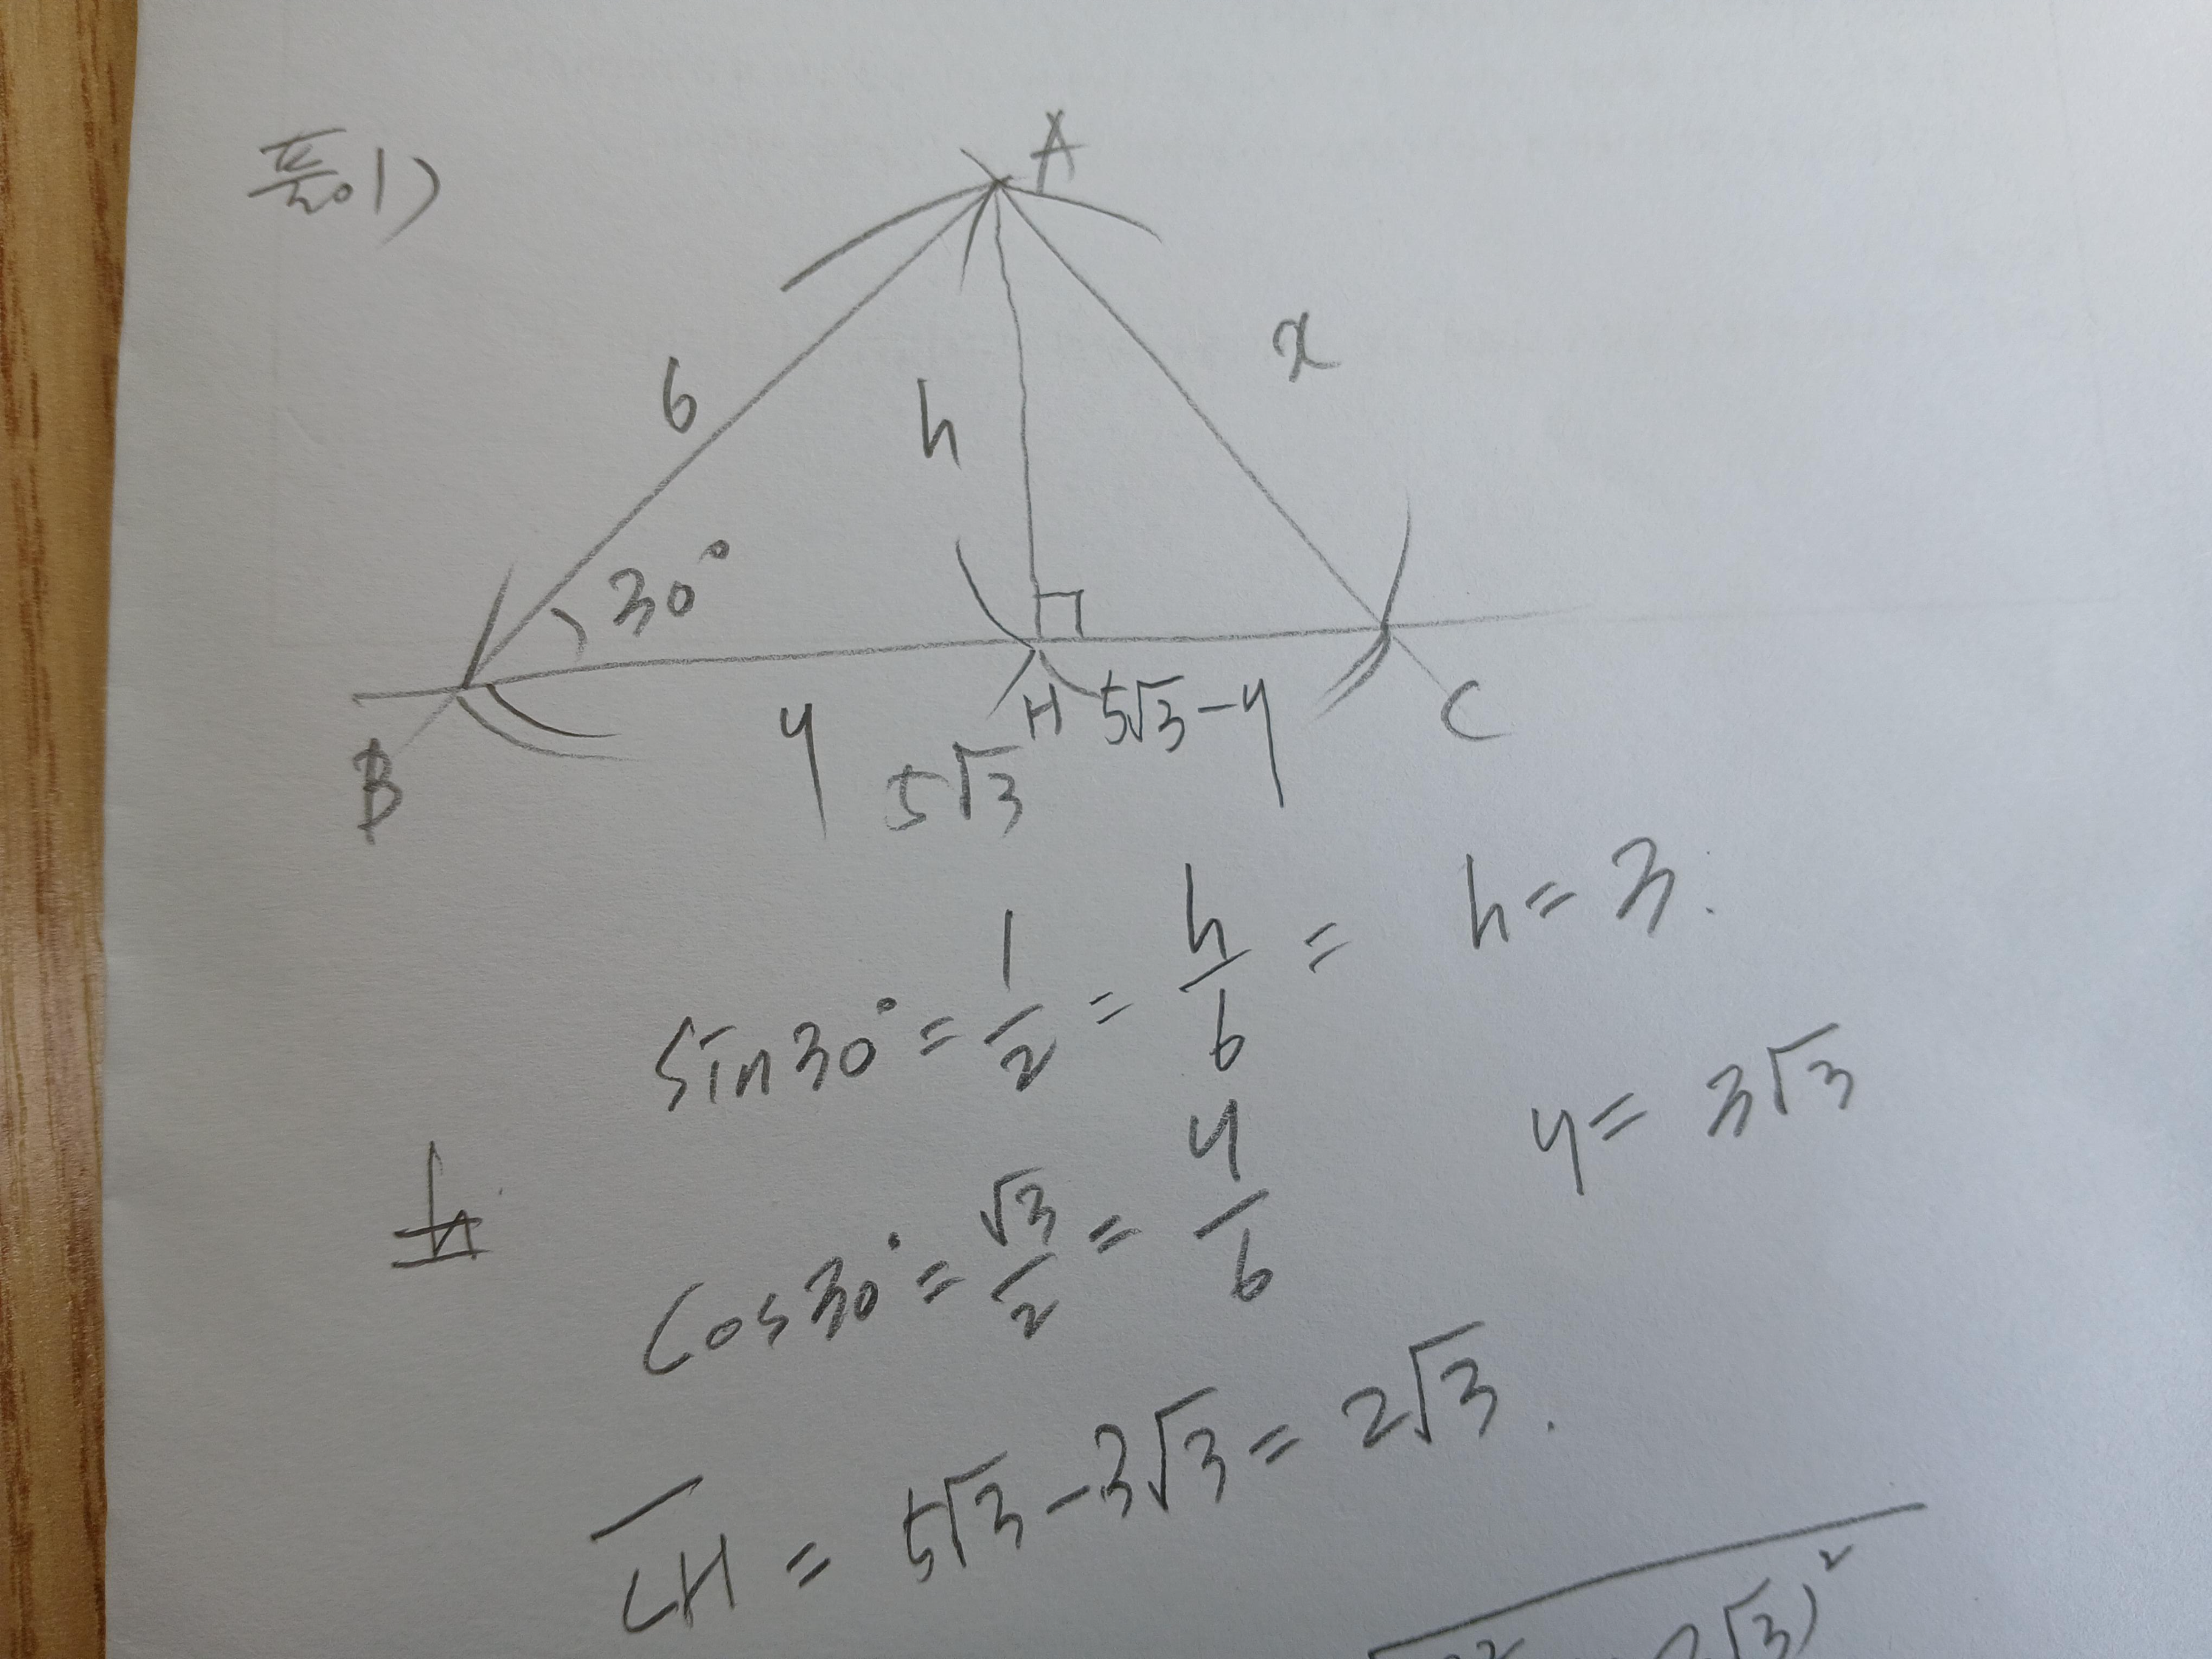 풀이)
A
6
h
x
30°
B
y
H
5√3-y
C
5√3
sin30° = 1/2 = h/6 = h = 3.
cos30° = √3/2 = y/6 y = 3√3
CH = 5√3-3√3 = 2√3.
2√3)²